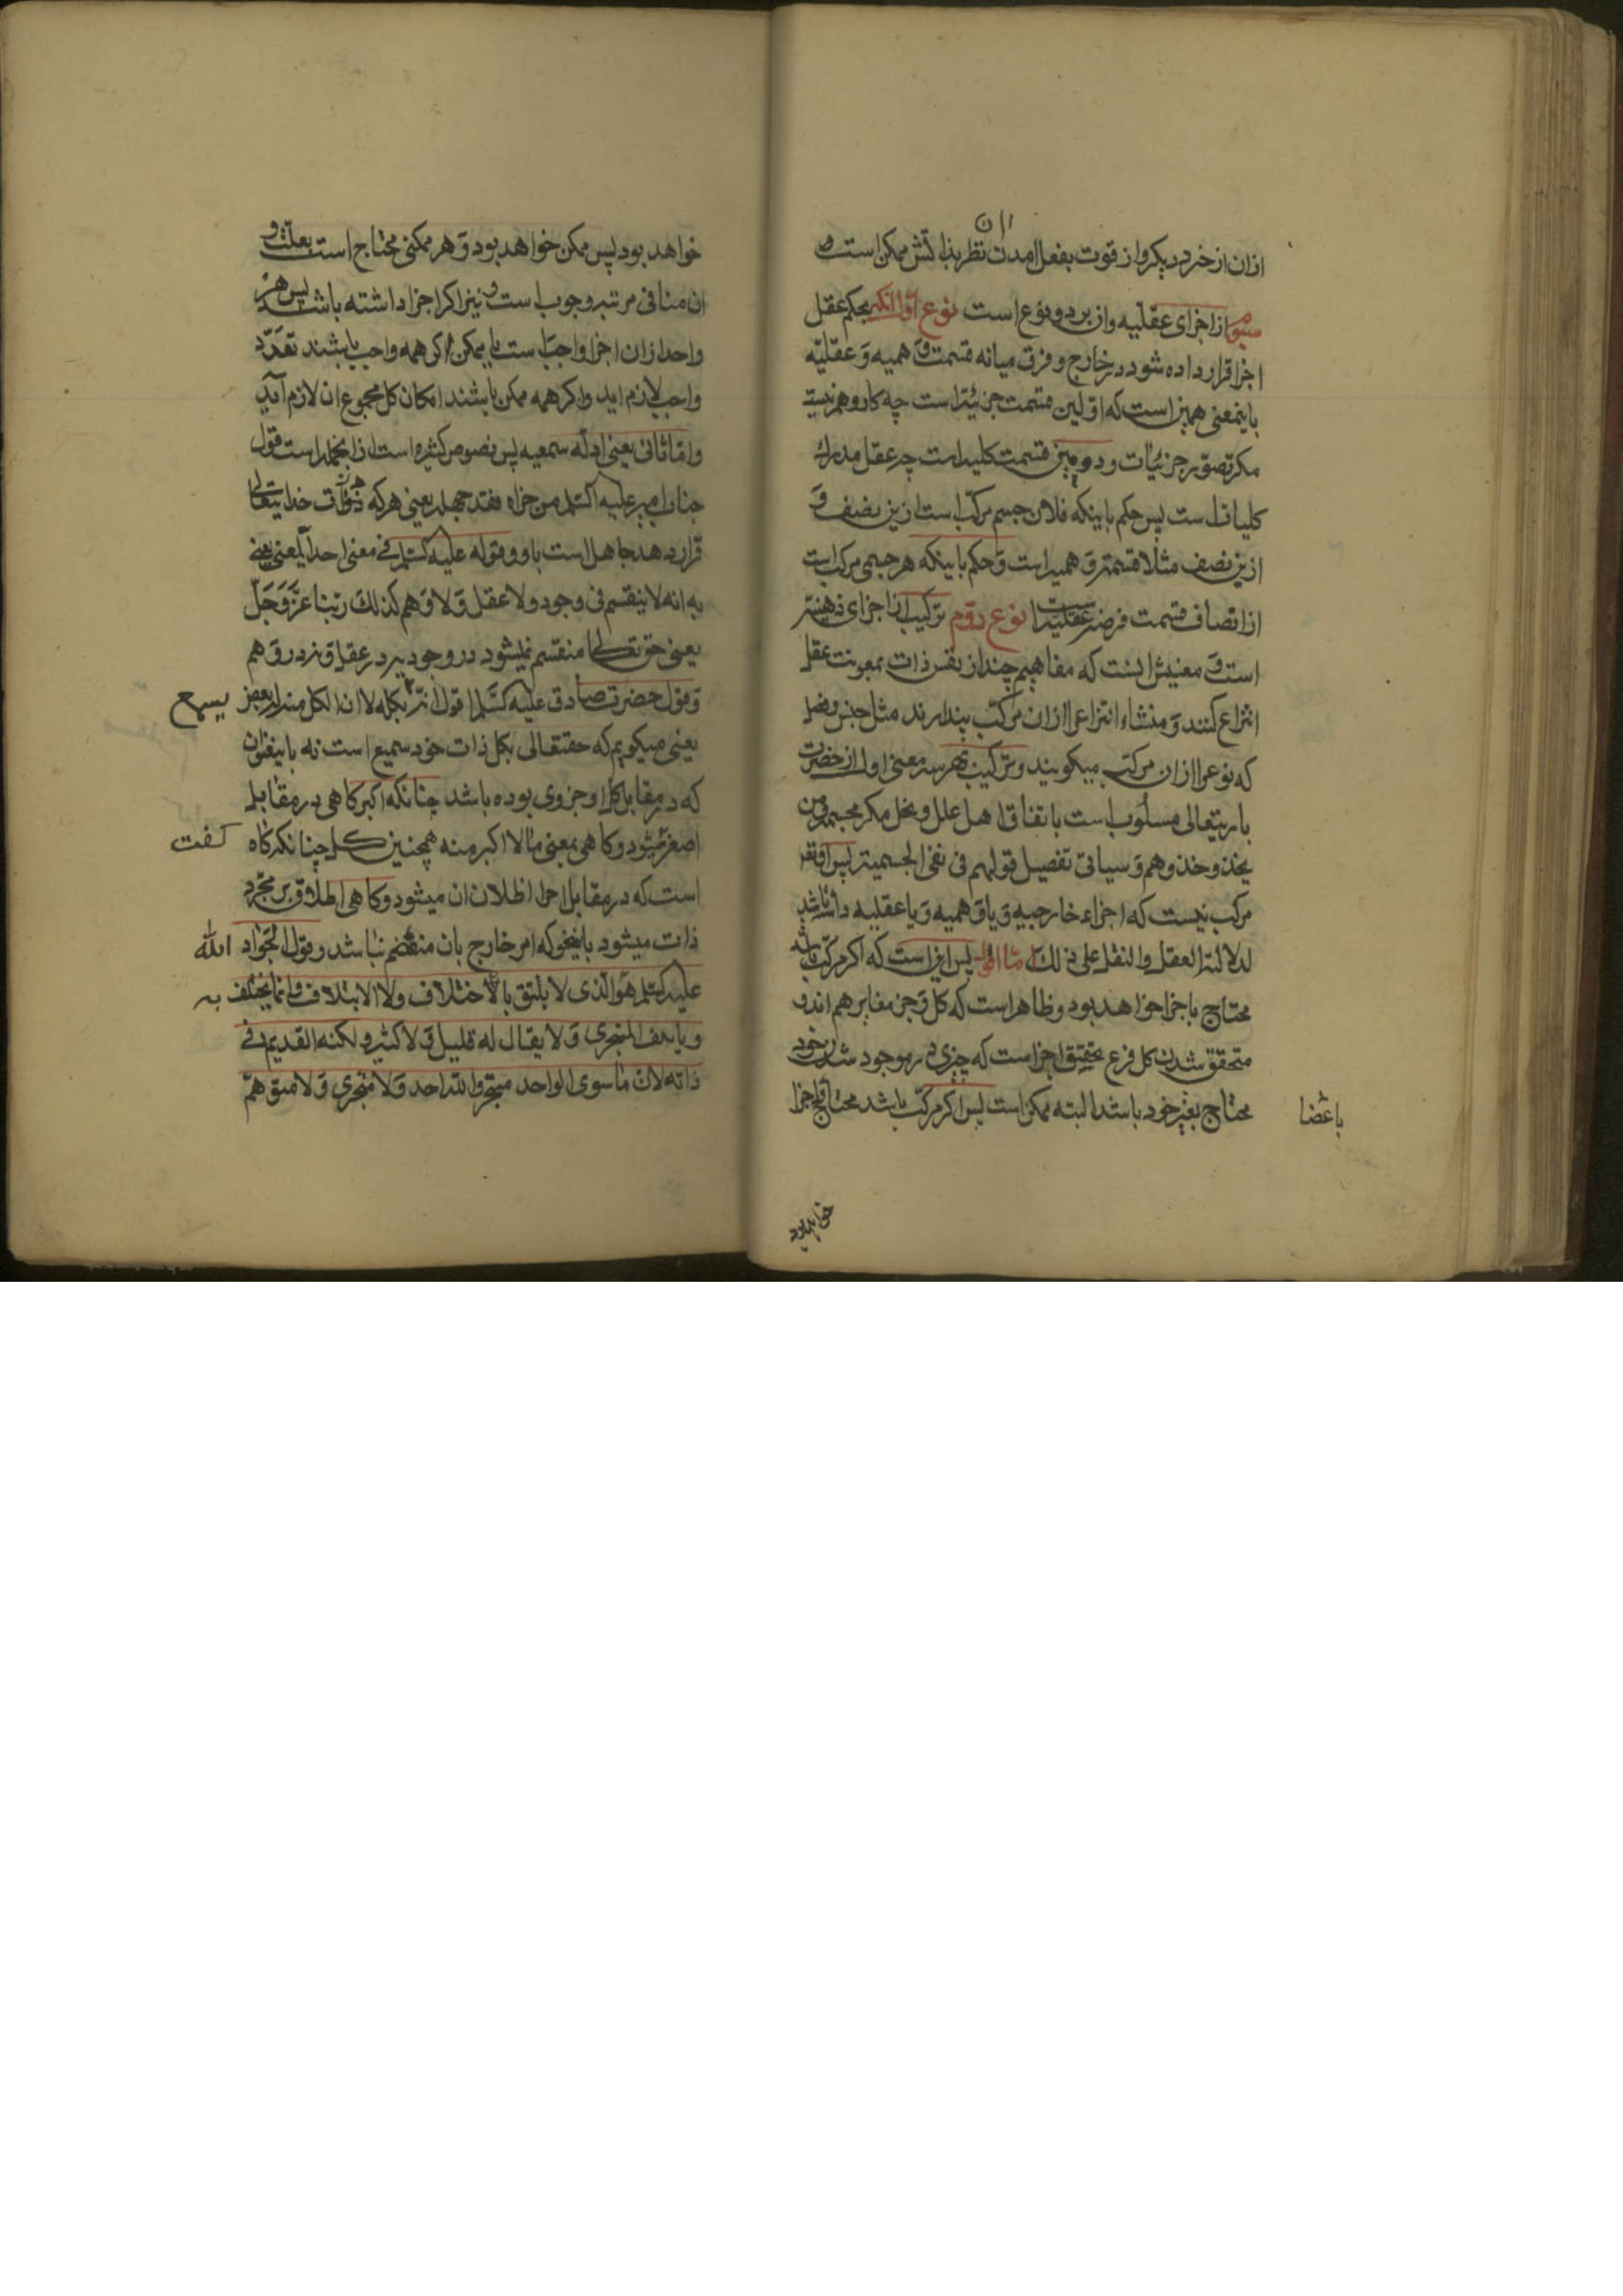 ازان از خرد دیکر و از قوت بفعل امدن نظر بذاتش ممکن است و
از اجزای عقلیه و ان بر دو نوع است نوع اول انکه بحکم عقل
اجزا قرار داده شود در خارج و فرق میانه قسمت وهمیه و عقلیه
باینمعنی همین است که اولین قسمت جزئیه است چه کار وهم نیست
مکر تصور جزئیات و دومین قسمت کلیه است چه عقل مدرک
کلیات است پس حکم باینکه فلان جسم مرکب است ازین نصف و
ازین نصف مثلا قسمت وهمیه است و حکم باینکه هر جسمی مرکب است
از انصاف قسمت فرضیه عقلیه است نوع دوم ترکیب از اجزای ذهنیه
است و معنیش اینست که مفاهیم چند از نفس ذات بمعونت عقل
انتزاع کنند و منشاء انتزاع را ازان مرکب پندارند مثل جنس و فصل
که نوع را ازان مرکب میکویند و ترکیب بهر سه معنی اول از حضرت
باریتعالی مسلوب است باتفاق اهل علل و نحل مکر مجسمه و من
یحذو حذوهم و سیاتی تفصیل قولهم فی نفی الجسمیة پس او تعالی
مرکب نیست که اجزاء خارجیه و یا وهمیه و یا عقلیه داشته باشد
لدلالة العقل والنقل علی ذلک اما اول پس این است که اکر مرکب باشد
محتاج باجزا خواهد بود و ظاهر است که کل و جزء مغایر هم اند و
متحقق شدن کل فرع تحقیق اجزاست که چیزی در موجود شدن خود
محتاج بغیر خود باشد البته ممکن است پس اکر مرکب باشد محتاج باجزا
باعضا
خواهد بود
خواهد بود پس ممکن خواهد بود و هر ممکنی محتاج است بعلت و
ان منافی مرتبه وجوب است و نیز اکر اجزا داشته باشد پس هر
واحد ازان اجزا واجب است یا ممکن اکر همه واجب باشند تعدد
واجب لازم اید و اکر همه ممکن باشند امکان کل مجموع ان لازم آید
و اما ثانی یعنی ادله سمعیه پس نصوص کثیره است ازانجمله است قول
جناب امیر علیه السلم من جزاه فقد جهله یعنی هر که خدایتعالی
قرار دهد جاهل است باو و قوله علیه السلم فی معنی احد المعنی یعنی
به انه لا ینقسم فی وجود ولا عقل ولا وهم کذلک ربنا عز و جل
یعنی حق تعالی منقسم نمیشود در وجود نه در عقل و نه در وهم
و قول حضرت صادق علیه السلم اقول انه یسمع بکله لا ان الکل منه له بعض
یعنی میکویم که حقتعالی بکل ذات خود سمیع است نه باینعنوان
که در مقابل کل او جزوی بوده باشد چنانکه اکبر کاهی در مقابل
اصغر میشود و کاهی بمعنی مالا اکبر منه همچنین کل چنانکه کاه کفت
است که در مقابل اجزا اطلاق ان میشود و کاهی اطلاق بر مجرد
ذات میشود بانیخو که امر خارج بان منضم نباشد و قول الجواد
علیه السلم هو الذی لا یلیق بالاختلاف ولا الایتلاف وانما یختلف به الله
و یاتلف المتجزی ولا یقال له قلیل ولا کثیر ولکنه القدیم فی
ذاته لان ماسوی الواحد متجز والله احد ولا متجزی ولا متوهم